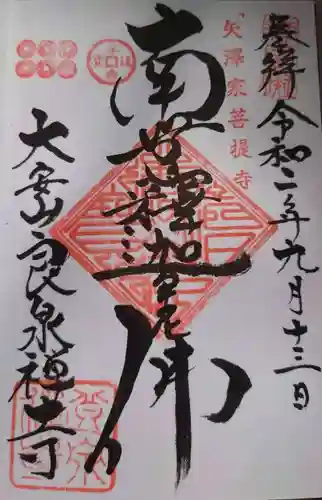 奉拝
令和二年九月十三日
矢澤家菩提寺
南無釋迦牟尼佛
大安山良泉禅寺